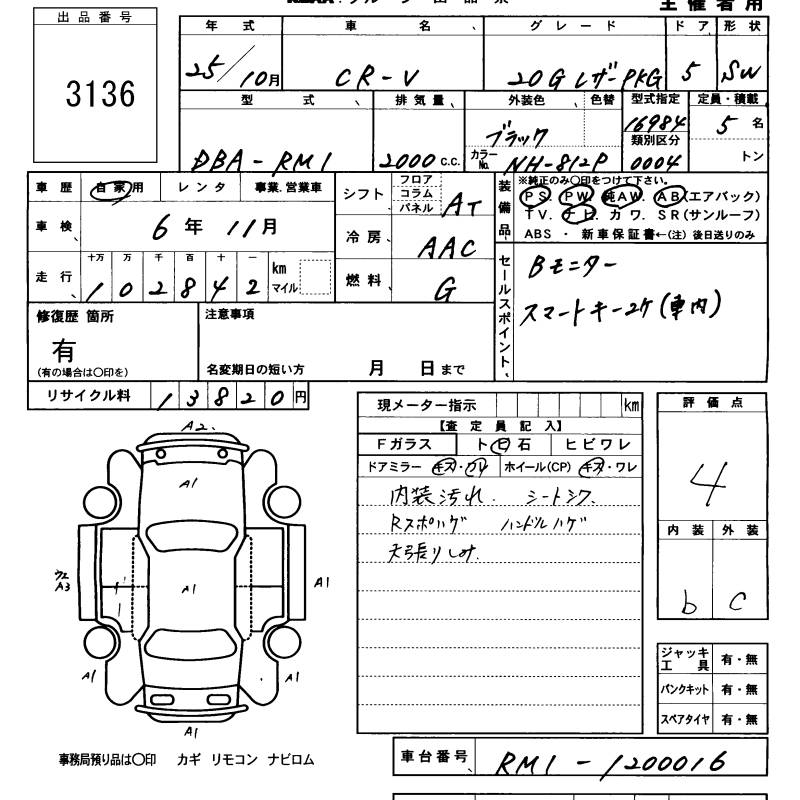 主催者用
出品番号
3136
年式 車名 グレード ドア 形状
25/10月 CR-V 20G レザーPKG 5 SW
型式 排気量 外装色 色替 型式指定 定員・積載
DBA-RM1 2000 C.C. ブラック 16984 5 名
カラーNo. NH-812P 類別区分 0004 トン
車歴 自家用 レンタ 事業.営業車
車検 6年 11月
走行 十万 万 千 百 十 一 km マイル
102842
シフト フロア コラム パネル AT
冷房 AAC
燃料 G
装備品 ※純正のみ○印をつけて下さい。
PS. PW. 純AW. AB(エアバック)
TV. ナビ. カワ. SR(サンルーフ)
ABS ・ 新車保証書←(注) 後日送りのみ
セールスポイント Bモニター
スマートキー2ケ(車内)
修復歴 箇所
有
(有の場合は○印を)
注意事項
名変期日の短い方 月 日まで
リサイクル料 13820円
現メーター指示 km
【査定員記入】
Fガラス ト ヒ 石 ヒビワレ
ドアミラー キズ・ワレ ホイール(CP) キズ・ワレ
内装汚れ. シートシワ.
Rスポハゲ ハンドルハゲ
天張りしみ.
評価点
4
内装 外装
b C
A2
A1
A1
ウエ
A3
A1
A1
A1
A1
ジャッキ工具 有・無
パンクキット 有・無
スペアタイヤ 有・無
事務局預り品は○印 カギ リモコン ナビロム
車台番号 RM1-1200016